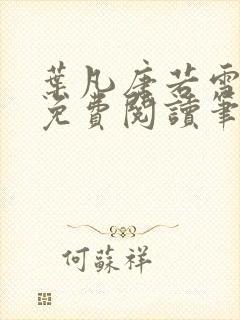 葉凡唐若雪
免費閱讀筆
何蘇祥